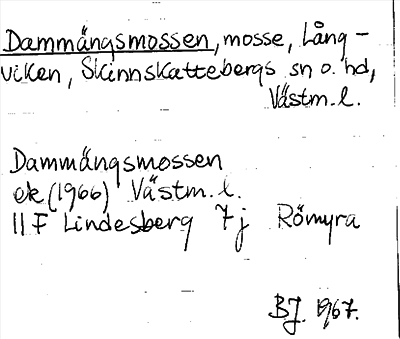 Dammängsmossen, mosse, Lång-
viken, Skinnskattebergs sn o. hd,
Västm. l.
Dammängsmossen
ek (1966) Västm. l.
11 F Lindesberg 7 j Römyra
BJ. 1967.